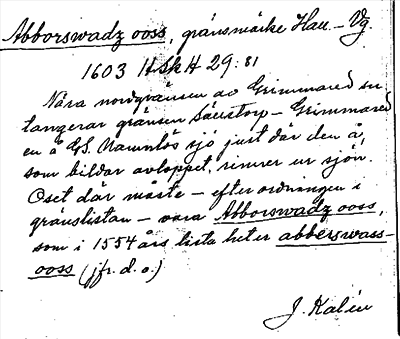 Abborswadz ooss, gränsmärke Hall - Vg.
1603 HSkH 29:81
Nära nordgränsen av Grimmared
tangerar gränsen Säustorp - Grimmared
en å GS. Namnlös sjö just där den å,
som bildar avloppet, rinner ur sjön.
Oset där måste - efter ordningen i
gränslistan - vara Abborswadz ooss,
som i 1554 års lista heter abberswass-
ooss (jfr. d. o.)
J. Kalén